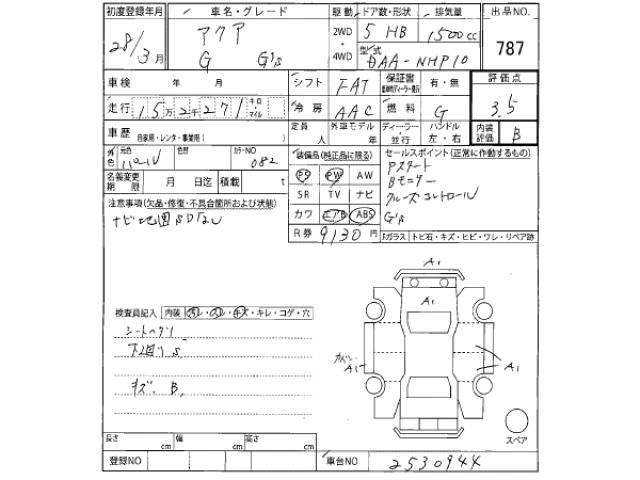 初度登録年月 車名・グレード 駆動 ドア数・形状 排気量 出品NO.
28/3月 アクア 2WD 5 HB 1500cc 787
G G's 4WD 型式 DAA-NHP10
車検 年 月 シフト FAT 保証書 有・無 評価点
走行 15万2千271 キロ マイル 冷房 AAC 燃料 G 3.5
車歴 自家用・レンタ・事業用( ) 定員 人 外車モデル 年 ディーラー・並行 ハンドル 左・右 内装評価 B
外色 元色 パール 色替 カラーNO 082 装備品(純正品に限る) セールスポイント(正常に作動するもの)
名義変更期限 月 日迄 積載 t PS PW AW Pスタート
SR TV ナビ Bモニター
注意事項(欠品・修復・不具合箇所および状態) カワ エアB ABS クルーズコントロール
ナビ地図SD R券 9130円 G's
Fガラス トビ石・キズ・ヒビ・ワレ・リペア跡
A1
A1
検査員記入 内装 ヨゴレ・スレ・キズ・キレ・コゲ・穴
シートヘタリ
下廻りS
キズ、B
A1 A1
スペア
長さ cm 幅 cm 高さ cm
登録NO 車台NO 2530944